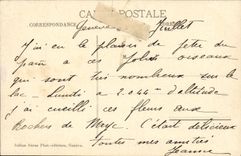 CARTE POSTALE
CORRESPONDANCE
Genève Juillet
J'ai eu le plaisir de jeter du
pain à ces jolis oiseaux
qui sont très nombreux sur le
lac - Lundi à 2.044m d'altitude
j'ai cueilli ces fleurs aux
Rochers de Naye. C'était délicieux
Toutes mes amitiés
Jeanne
Jullien frères Phot.-éditeurs, Genève.